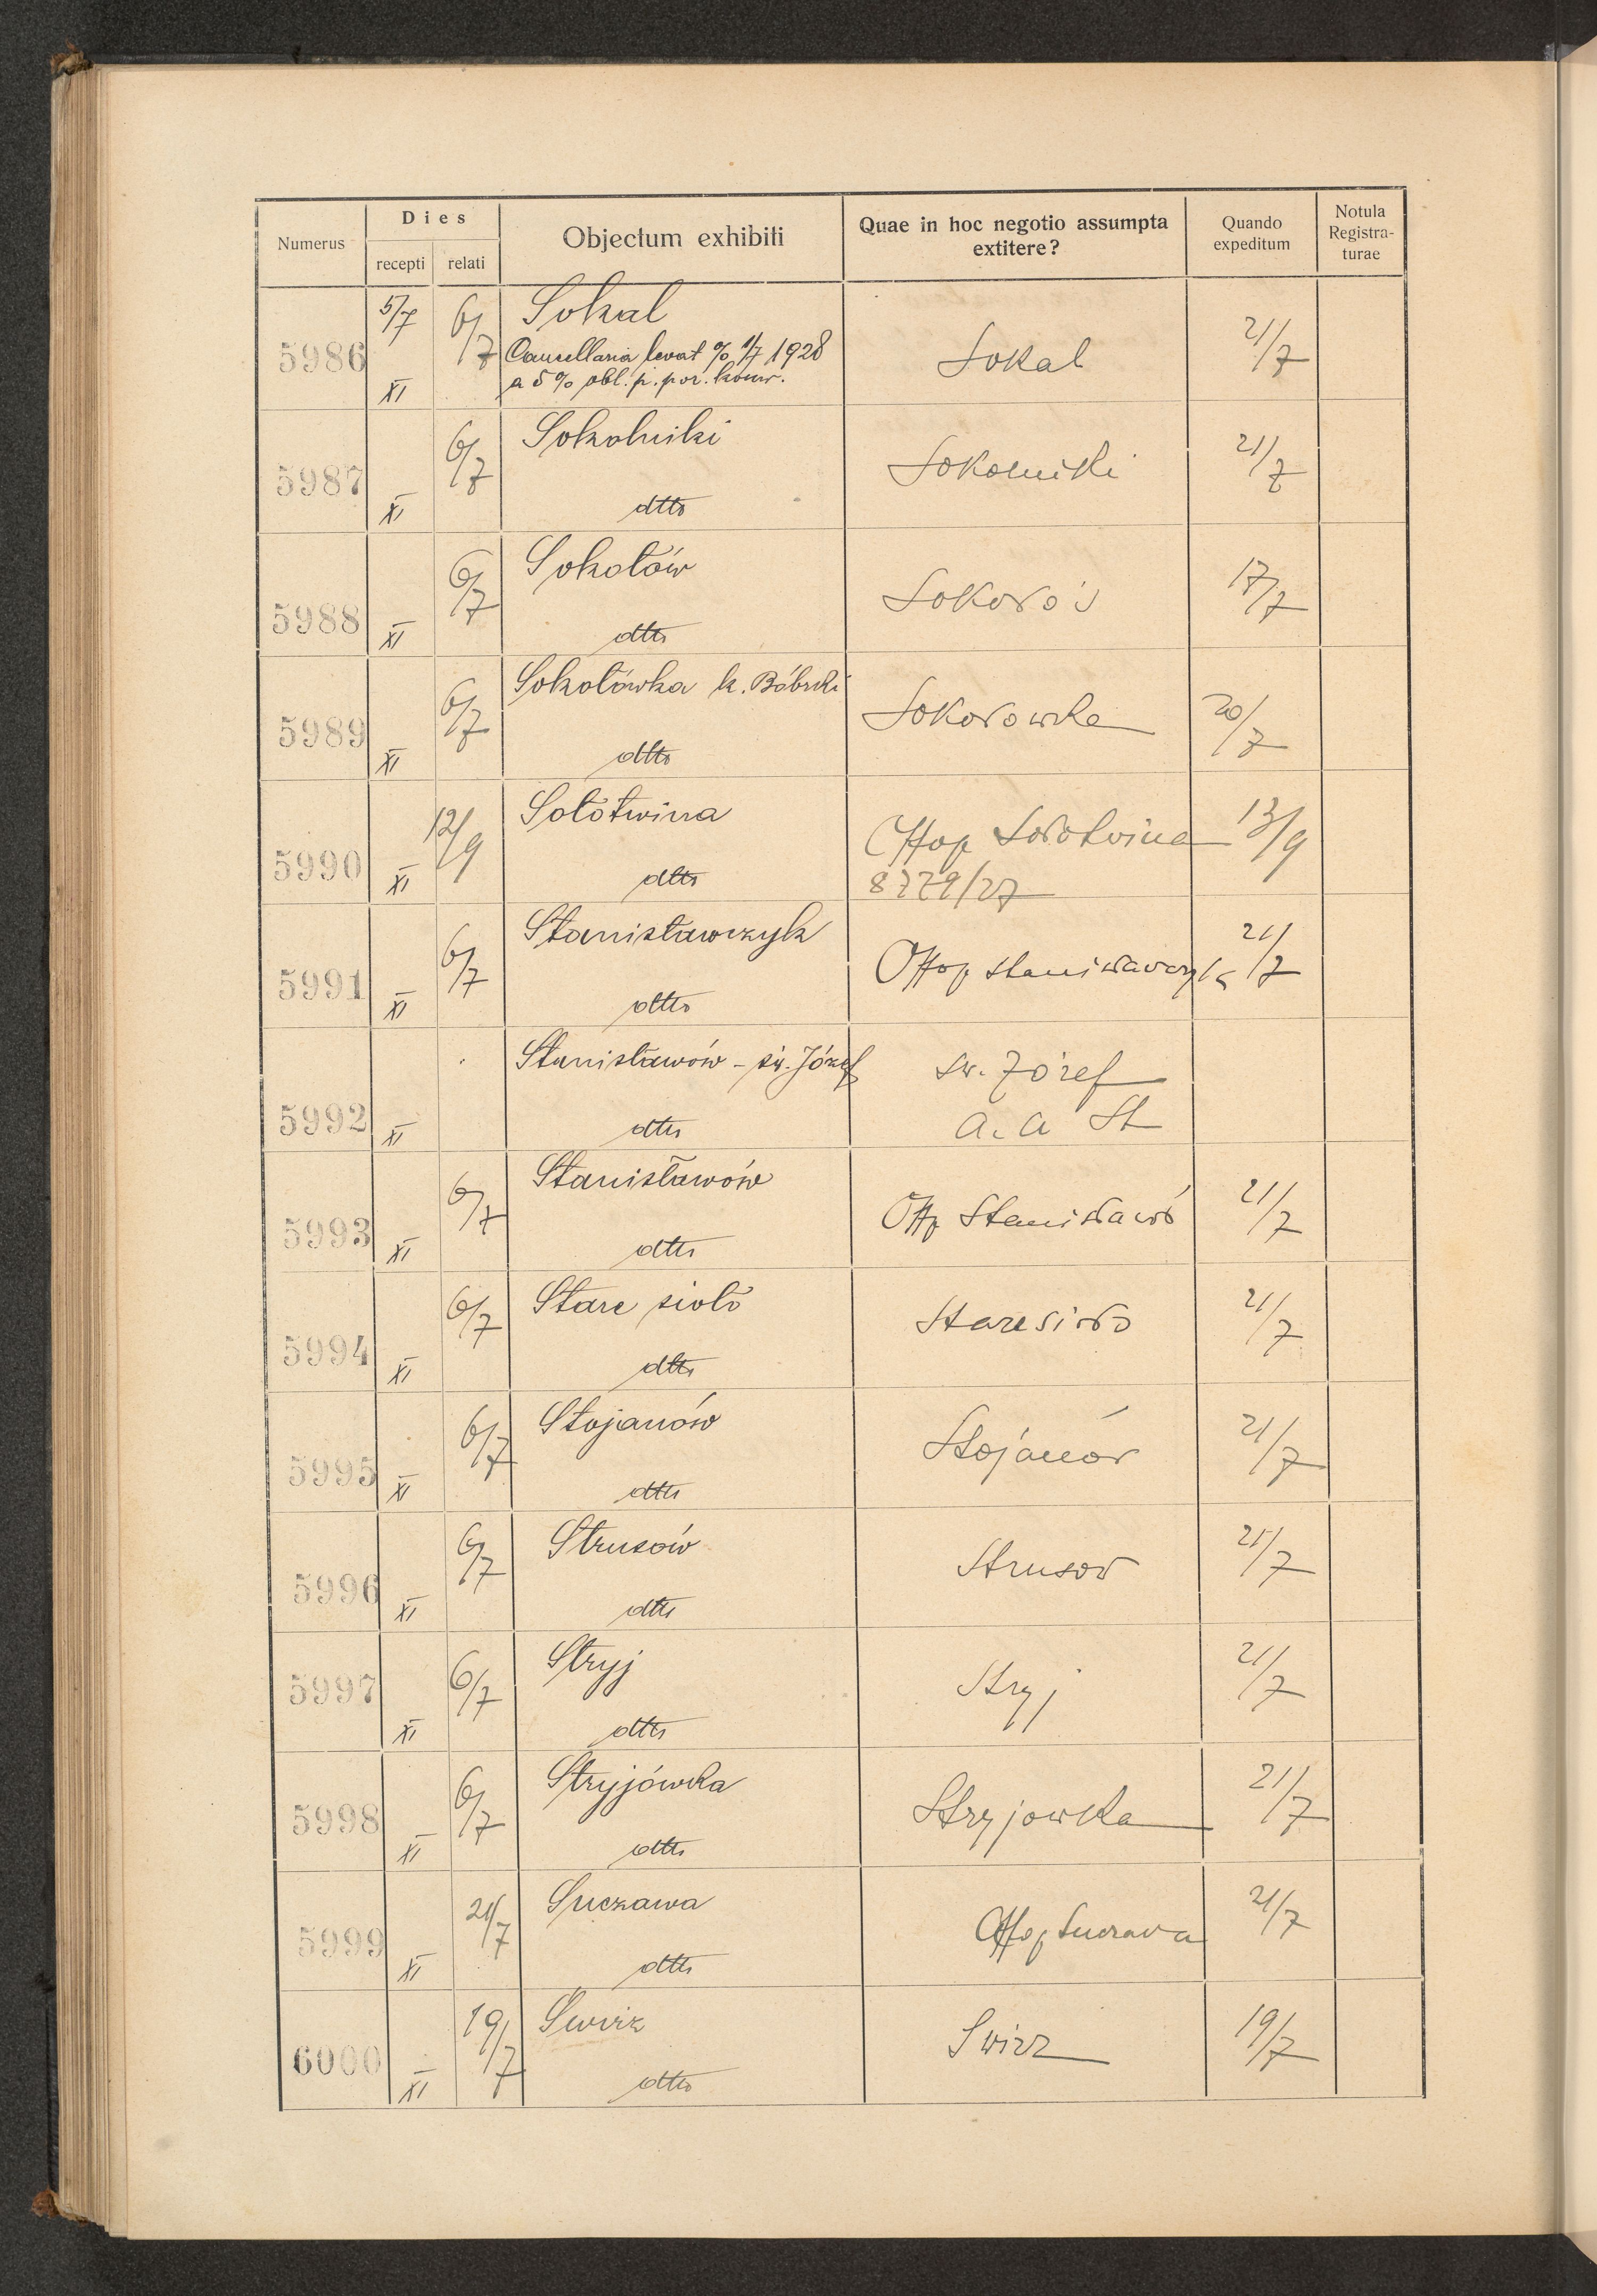 Numerus
Dies
recepti relati
Objectum exhibiti
Quae in hoc negotio assumpta
extitere?
Quando
expeditum
Notula
Registra-
turae
5986 5/7 XI 6/7 Sokal
Cancellaria levat % 1/7 1928
a 5% obl. p. poż. konw.
Sokal 21/7
5987 XI 6/7 Sokolniki
dtto
Sokolniki 21/7
5988 XI 6/7 Sokołów
dtto
Sokołów 17/7
5989 XI 6/7 Sokołówka k. Bóbrki
dtto
Sokołowka 20/7
5990 XI 12/9 Sołotwina
dtto
Sołotwina 13/9
8779/27
5991 XI 6/7 Stanisławczyk
dtto
Stanisławczyk 21/7
5992 XI Stanisławów - św. Józef
dtto
św. Józef
a. a St
5993 XI 6/7 Stanisławów
dtto
Stanisławów 21/7
5994 XI 6/7 Stare sioło
dtto
Staresioło 21/7
5995 XI 6/7 Stojanów
dtto
Stojanów 21/7
5996 XI 6/7 Strusów
dtto
Strusow 21/7
5997 XI 6/7 Stryj
dtto
Stryj 21/7
5998 XI 6/7 Stryjówka
dtto
Stryjowka 21/7
5999 XI 21/7 Suczawa
dtto
Suczawa 21/7
6000 XI 19/7 Świrz
dtto
Swirz 19/7